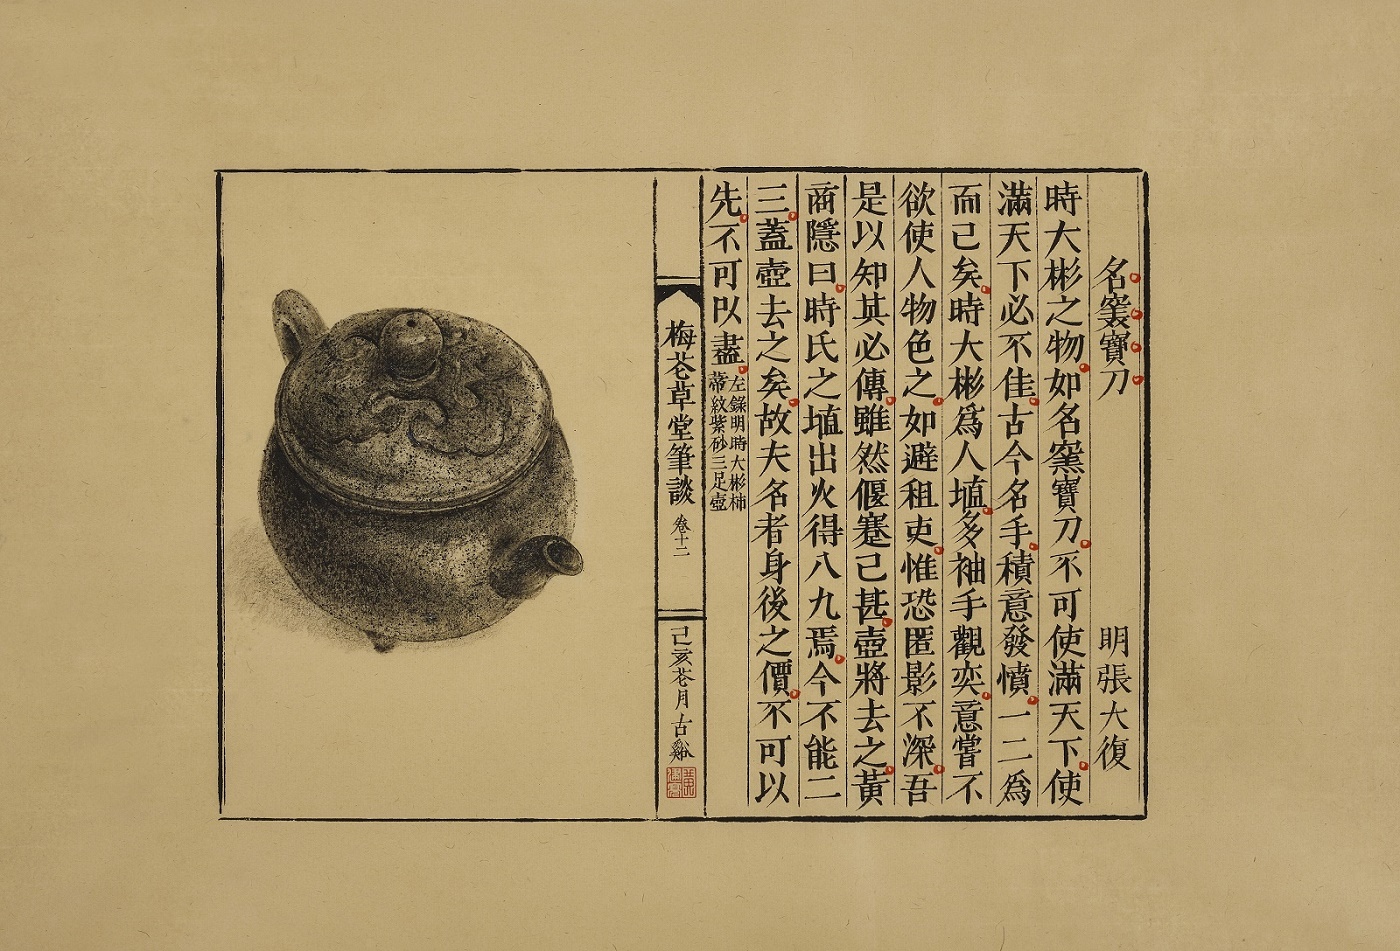 名窯寶刀　明張大復
時大彬之物如名窯寶刀不可使滿天下使
滿天下必不佳古今名手積意發憤一二爲
而己矣時大彬爲人埴多袖手觀奕意嘗不
欲使人物色之如避租吏惟恐匿影不深吾
是以知其必傳雖然偃蹇己甚壺將去之黃
商隱曰時氏之埴出火得八九焉今不能二
三蓋壺去之矣故夫名者身後之價不可以
先不可以盡
左錄明時大彬柿
蒂紋紫砂三足壺
梅芲草堂筆談　卷十二
己亥芲月古谿